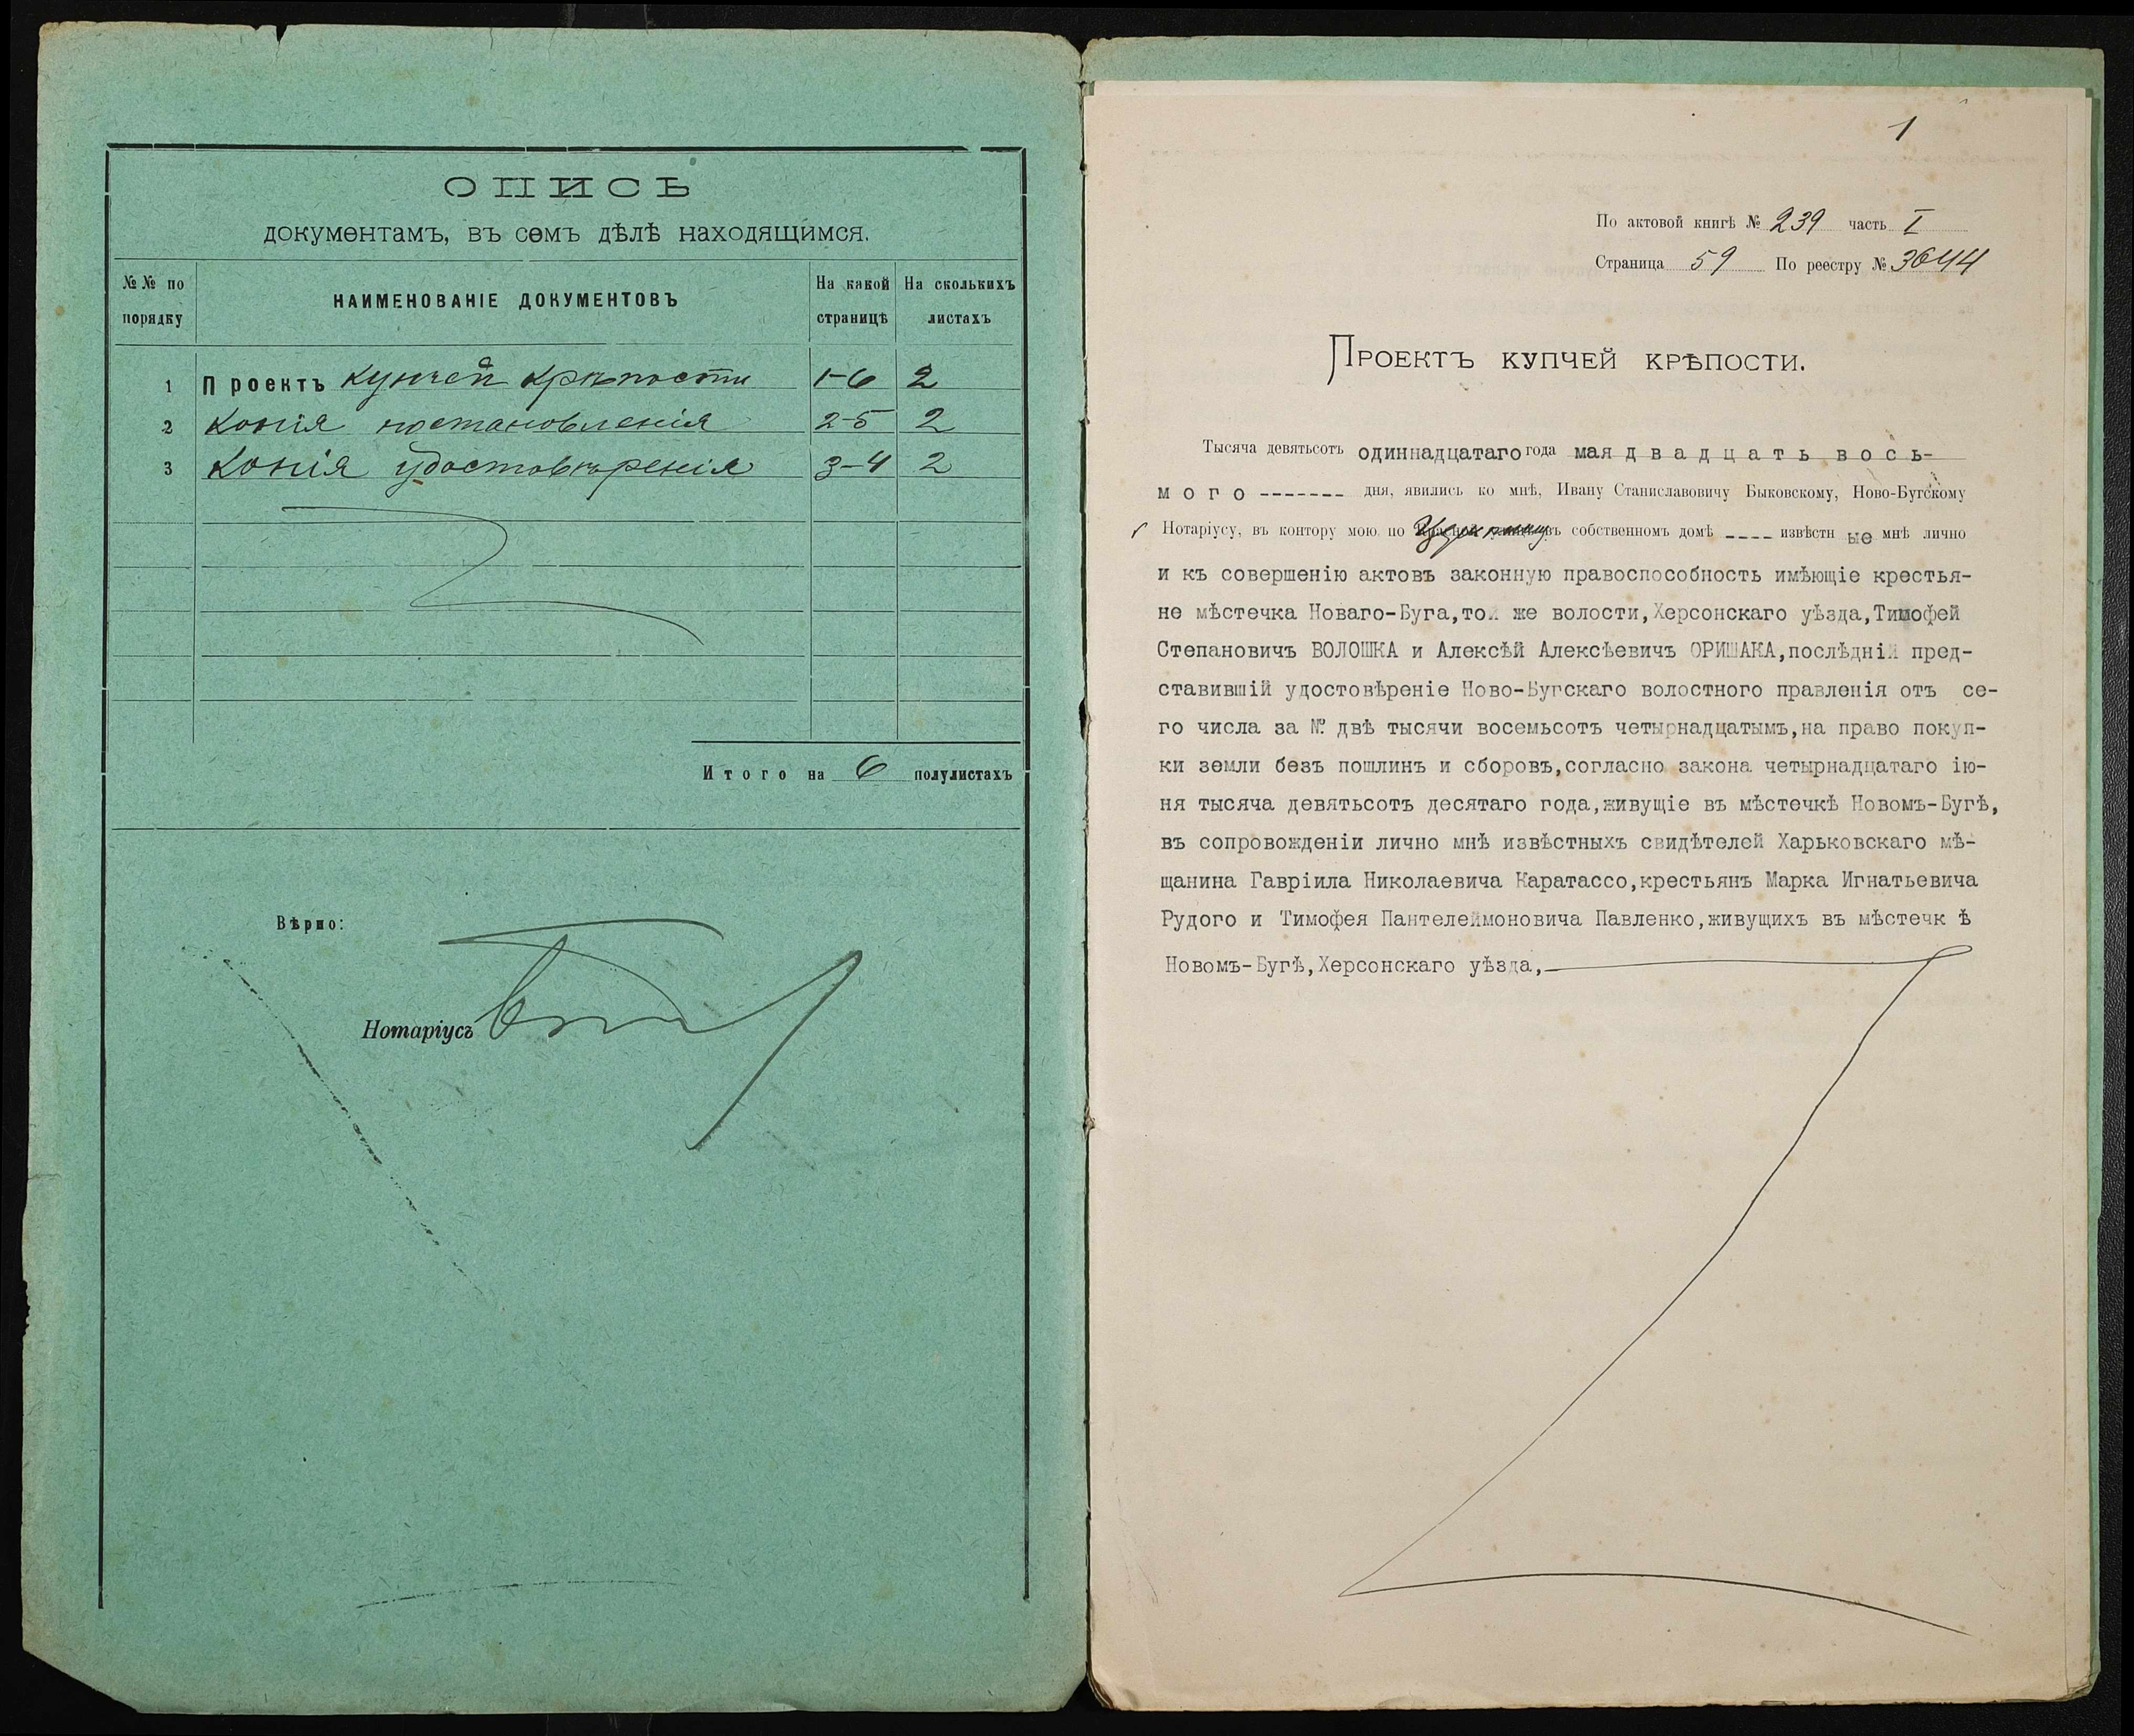 ОПИСЬ
документамъ, въ семъ дѣлѣ находящимся.
№№ по порядку
НАИМЕНОВАНІЕ ДОКУМЕНТОВЪ
На какой страницѣ
На сколькихъ листахъ
1 Проектъ купчей крѣпости 1-6 2
2 Копія постановленія 2-5 2
3 Копія удостовѣренія 3-4 2
Итого на 6 полулистахъ
Вѣрно:
Нотаріусъ
1
По актовой книгѣ № 239 часть I
Страница 59 По реестру № 3644
Проектъ купчей крѣпости.
Тысяча девятьсотъ одиннадцатаго года мая двадцать вось-
мого ------- дня, явились ко мнѣ, Ивану Станиславовичу Быковскому, Ново-Бугскому
Нотаріусу, въ контору мою по въ собственномъ домѣ ---- извѣстн ые мнѣ лично
и къ совершенію актовъ законную правоспособность имѣющіе крестья-
не мѣстечка Новаго-Буга,той же волости,Херсонскаго уѣзда,Тимофей
Степановичъ ВОЛОШКА и Алексѣй Алексѣевичъ ОРИШАКА,послѣдній пред-
ставившій удостовѣреніе Ново-Бугскаго волостного правленія отъ се-
го числа за № двѣ тысячи восемьсотъ четырнадцатымъ,на право покуп-
ки земли безъ пошлинъ и сборовъ,согласно закона четырнадцатаго ію-
ня тысяча девятьсотъ десятаго года,живущіе въ мѣстечкѣ Новомъ-Бугѣ,
въ сопровожденіи лично мнѣ извѣстныхъ свидѣтелей Харьковскаго мѣ-
щанина Гавріила Николаевича Каратассо,крестьянъ Марка Игнатьевича
Рудого и Тимофея Пантелеймоновича Павленко,живущихъ въ мѣстечк ѣ
Новомъ-Бугѣ,Херсонскаго уѣзда,